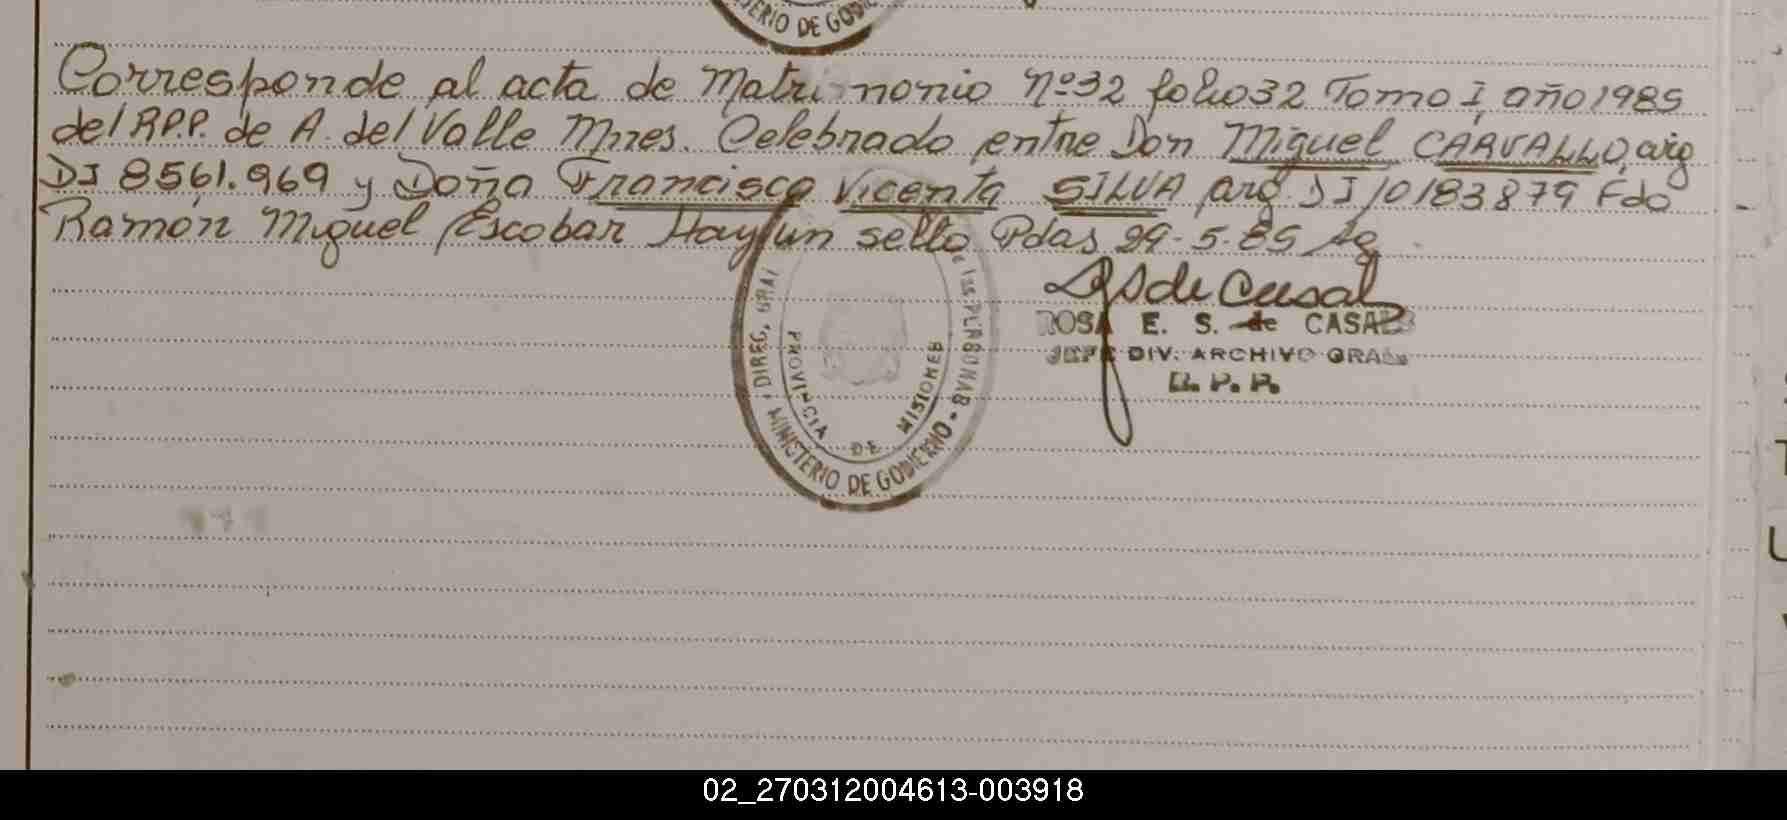 ERIO DE GOBIE
Corresponde al acta de Matrimonio Nº32 folio32 Tomo I, año1985
del R.P.P. de A. del Valle Mnes. Celebrado entre Don Miguel CARVALLO, arg
DI 8561.969 y Doña Francisca Vicenta SILVA arg DI 10183879 Fdo
Ramón Miguel Escobar Hay un sello Pdas 29-5-85
RS de Casal
ROSA E. S. de CASAL
JEFE DIV. ARCHIVO GRAL
R. P. P.
DIREC. GRAL de las PERSONAS
PROVINCIA DE MISIONES
MINISTERIO DE GOBIERNO
02_270312004613-003918